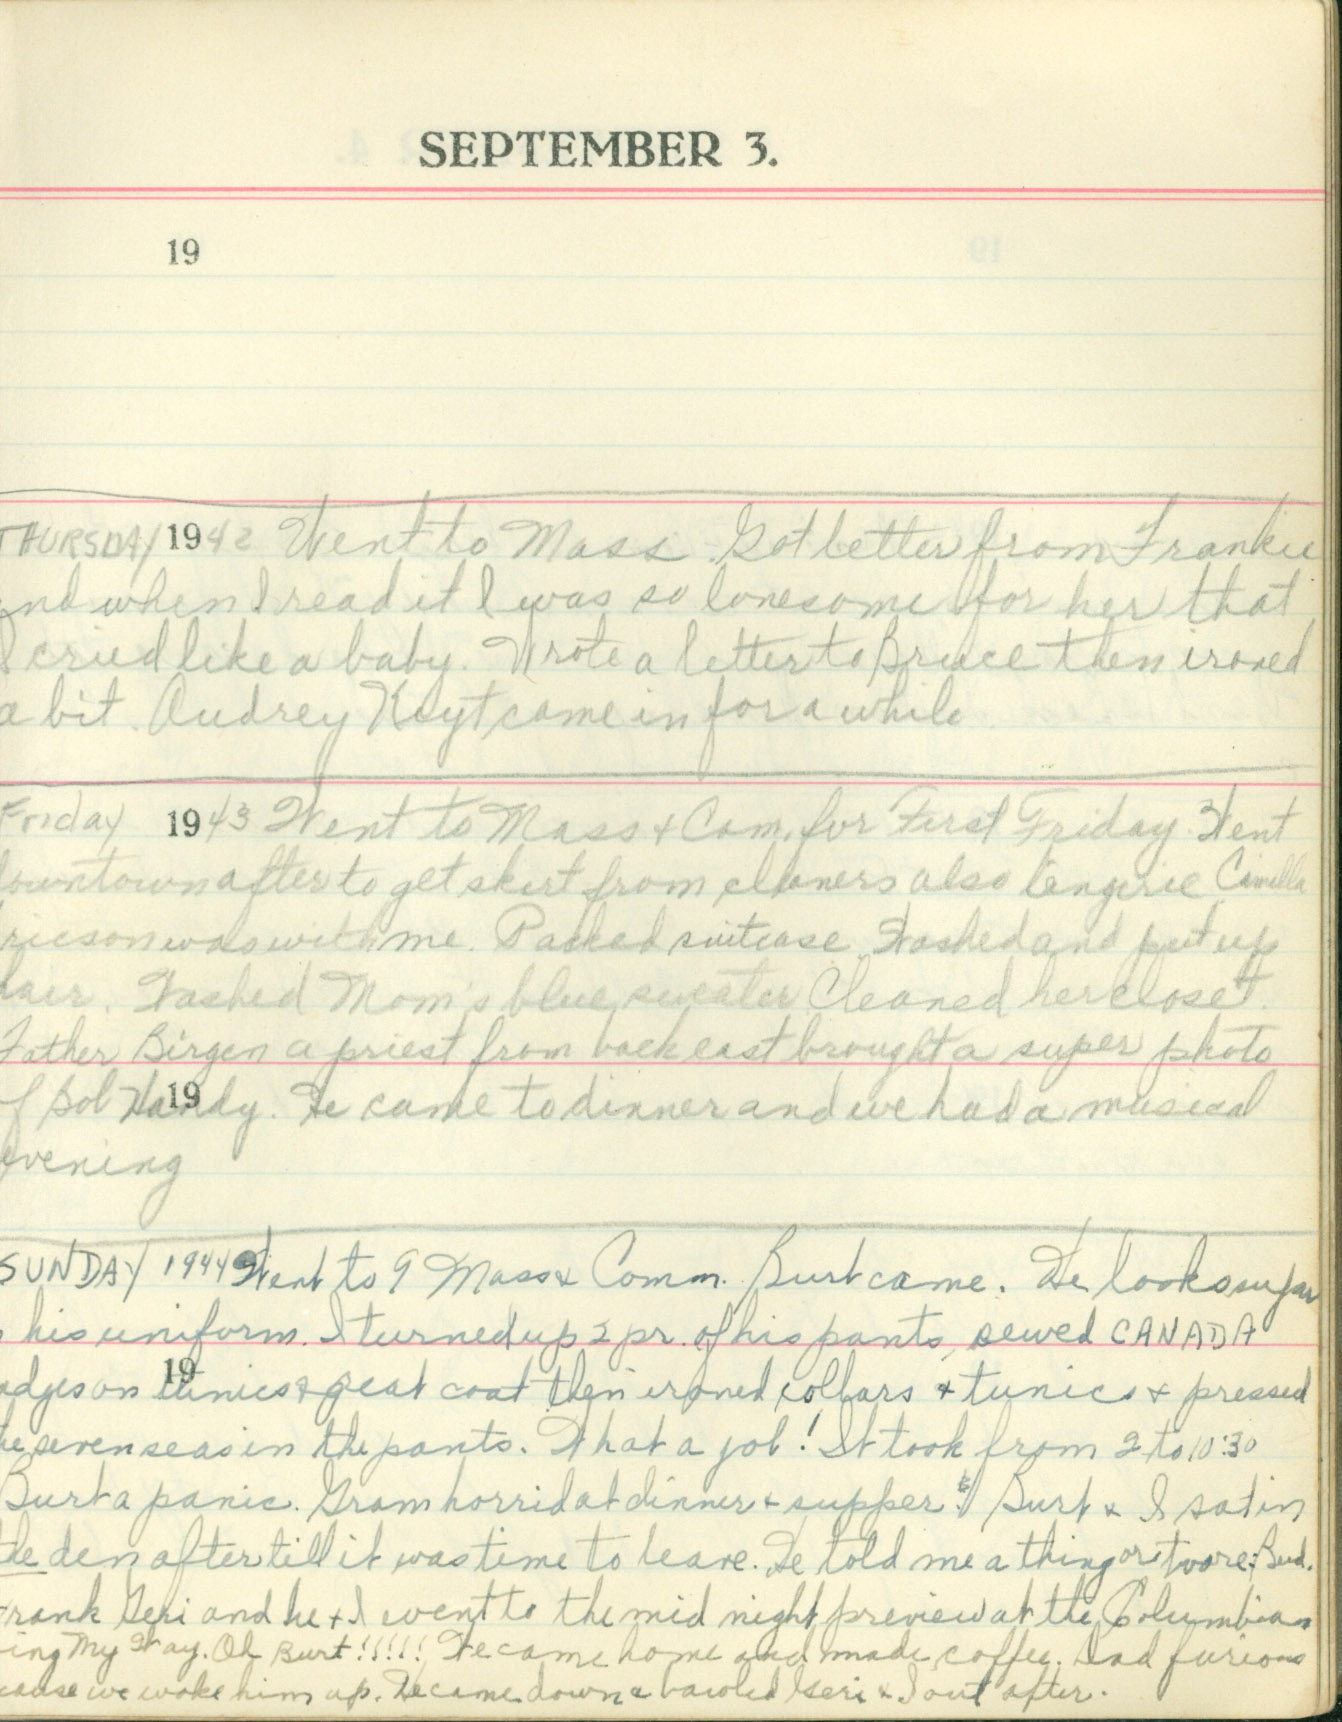 SEPTEMBER 3.
19
THURSDAY 1942 Went to Mass. Got letter from Frankie
and when I read it I was so lonesome for her that
I cried like a baby. Wrote a letter to Bruce then ironed
a bit. Audrey Hoyt came in for a while
Friday 1943 Went to Mass & Com. for First Friday. Went
downtown after to get skirt from cleaners also lingerie Camilla
ricson was with me. Packed suitcase. Washed and put up
hair. Washed Mom's blue sweater Cleaned her closet.
Father Birgen a priest from back east brought a super photo
of Bob Handy. He came to dinner and we had a musical
19
evening
SUNDAY 1944 Went to 9 Mass & Comm. Burt came. He looks
his uniform. I turned up 2 pr. of his pants, sewed CANADA
adges on tunics & great coat then ironed collars & tunics & pressed
19
the seven seas in the pants. What a job! It took from 2 to 10:30
Burt a panic. Gram horrid at dinner & supper! Burt & I sat in
the den after till it was time to leave. He told me a thing or two re: Bud.
rank Geri and he & I went to the mid night preview at the Columbian
ing My Way. Oh Burt!!!!! We came home and made coffee. Dad furious
cause we woke him up. He came down & bawled Geri & I out after.